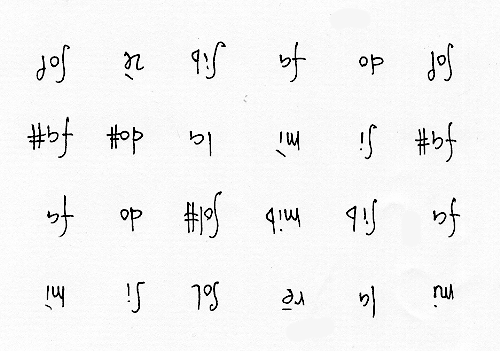 mi la rē sol si mi
fa sib mib sol# do fa
fa# si mì la do# fa#
sol do fa sib rè sol